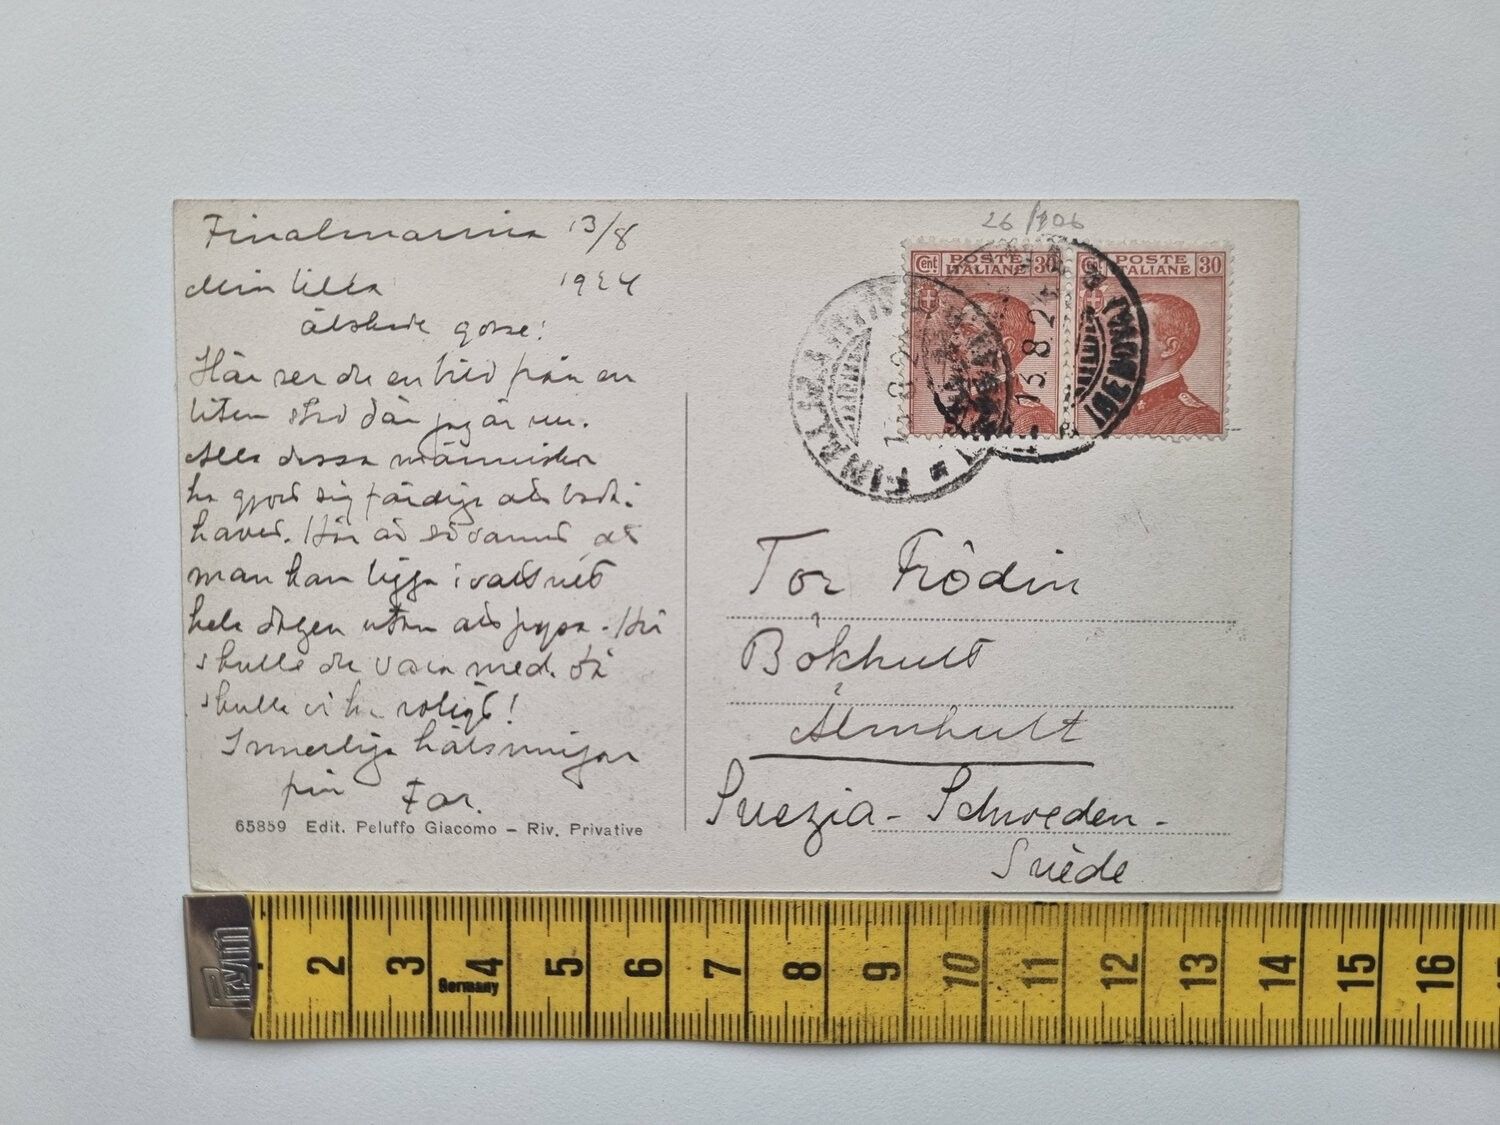 Finalmarina 13/8
1924
Min lilla
älskade gosse!
Här ser du en bild från en
liten stad där jag är nu.
Alla dessa människor
ha gjort sig färdiga att bada i
havet. Här är så varmt at
man kan ligga i vattnet
hela dagen utan att frysa. Här
skulle du vara med. Då
skulle vi ha roligt!
Innerliga hälsningar
från Far.
65859 Edit. Peluffo Giacomo – Riv. Privative
26/106
Cent POSTE ITALIANE 30
Cent POSTE ITALIANE 30
13.8.24
Tor Frödin
Bökhult
Älmhult
Suezia - Schweden -
Suède
Prym
2 3 4 5 6 7 8 9 10 11 12 13 14 15 16
Germany